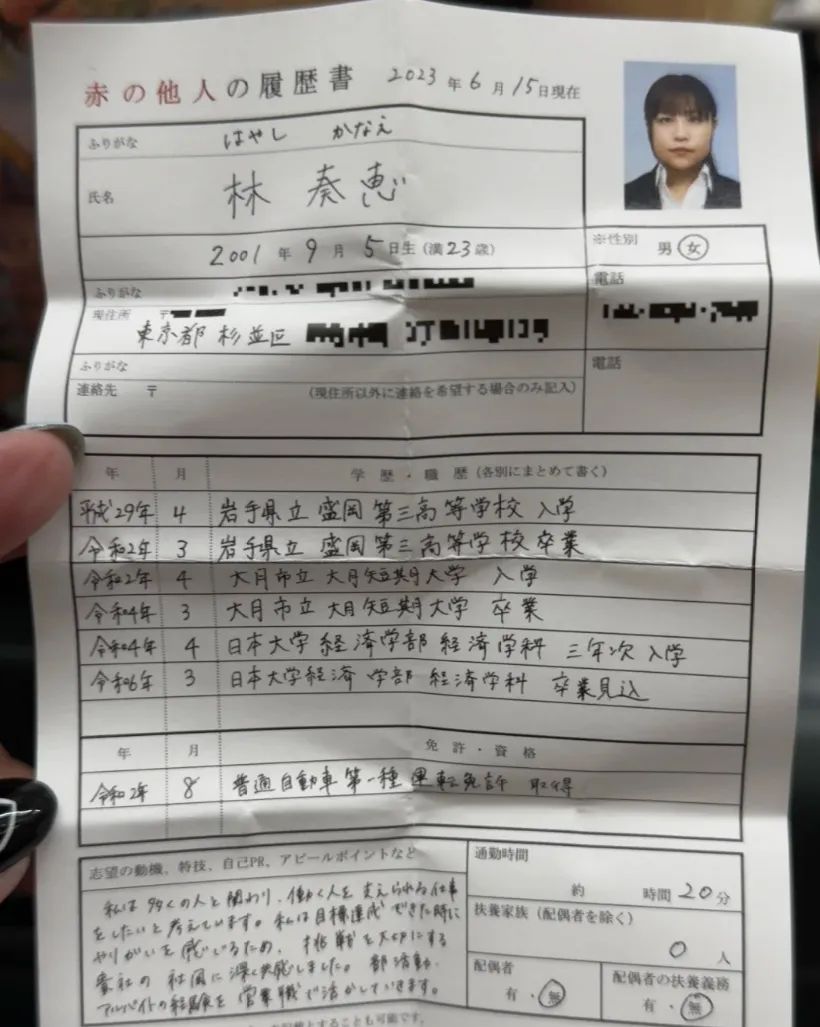 赤の他人の履歴書 2023年6月15日現在
ふりがな はやし かなえ
氏名 林 奏恵
2001年9月5日生(満23歳)
※性別 男・女
ふりがな
電話
現住所 〒
東京都 杉並区
ふりがな
電話
連絡先 〒 (現住所以外に連絡を希望する場合のみ記入)
年 月 学歴・職歴(各別にまとめて書く)
平成29年 4 岩手県立 盛岡第三高等学校 入学
令和2年 3 岩手県立 盛岡第三高等学校 卒業
令和2年 4 大月市立 大月短期大学 入学
令和4年 3 大月市立 大月短期大学 卒業
令和4年 4 日本大学 経済学部 経済学科 三年次 入学
令和6年 3 日本大学 経済学部 経済学科 卒業見込
年 月 免許・資格
令和2年 8 普通自動車第一種運転免許 取得
志望の動機、特技、自己PR、アピールポイントなど
私は多くの人と関わり、働く人を支えられる仕事
をしたいと考えています。私は目標達成できた時に
やりがいを感じるため、挑戦を大切にする
貴社の社風に深く共感しました。部活動、
アルバイトの経験を営業職で活かしていきます。
通勤時間
約 時間 20分
扶養家族(配偶者を除く)
0人
配偶者
有・無
配偶者の扶養義務
有・無
とすることも可能です。